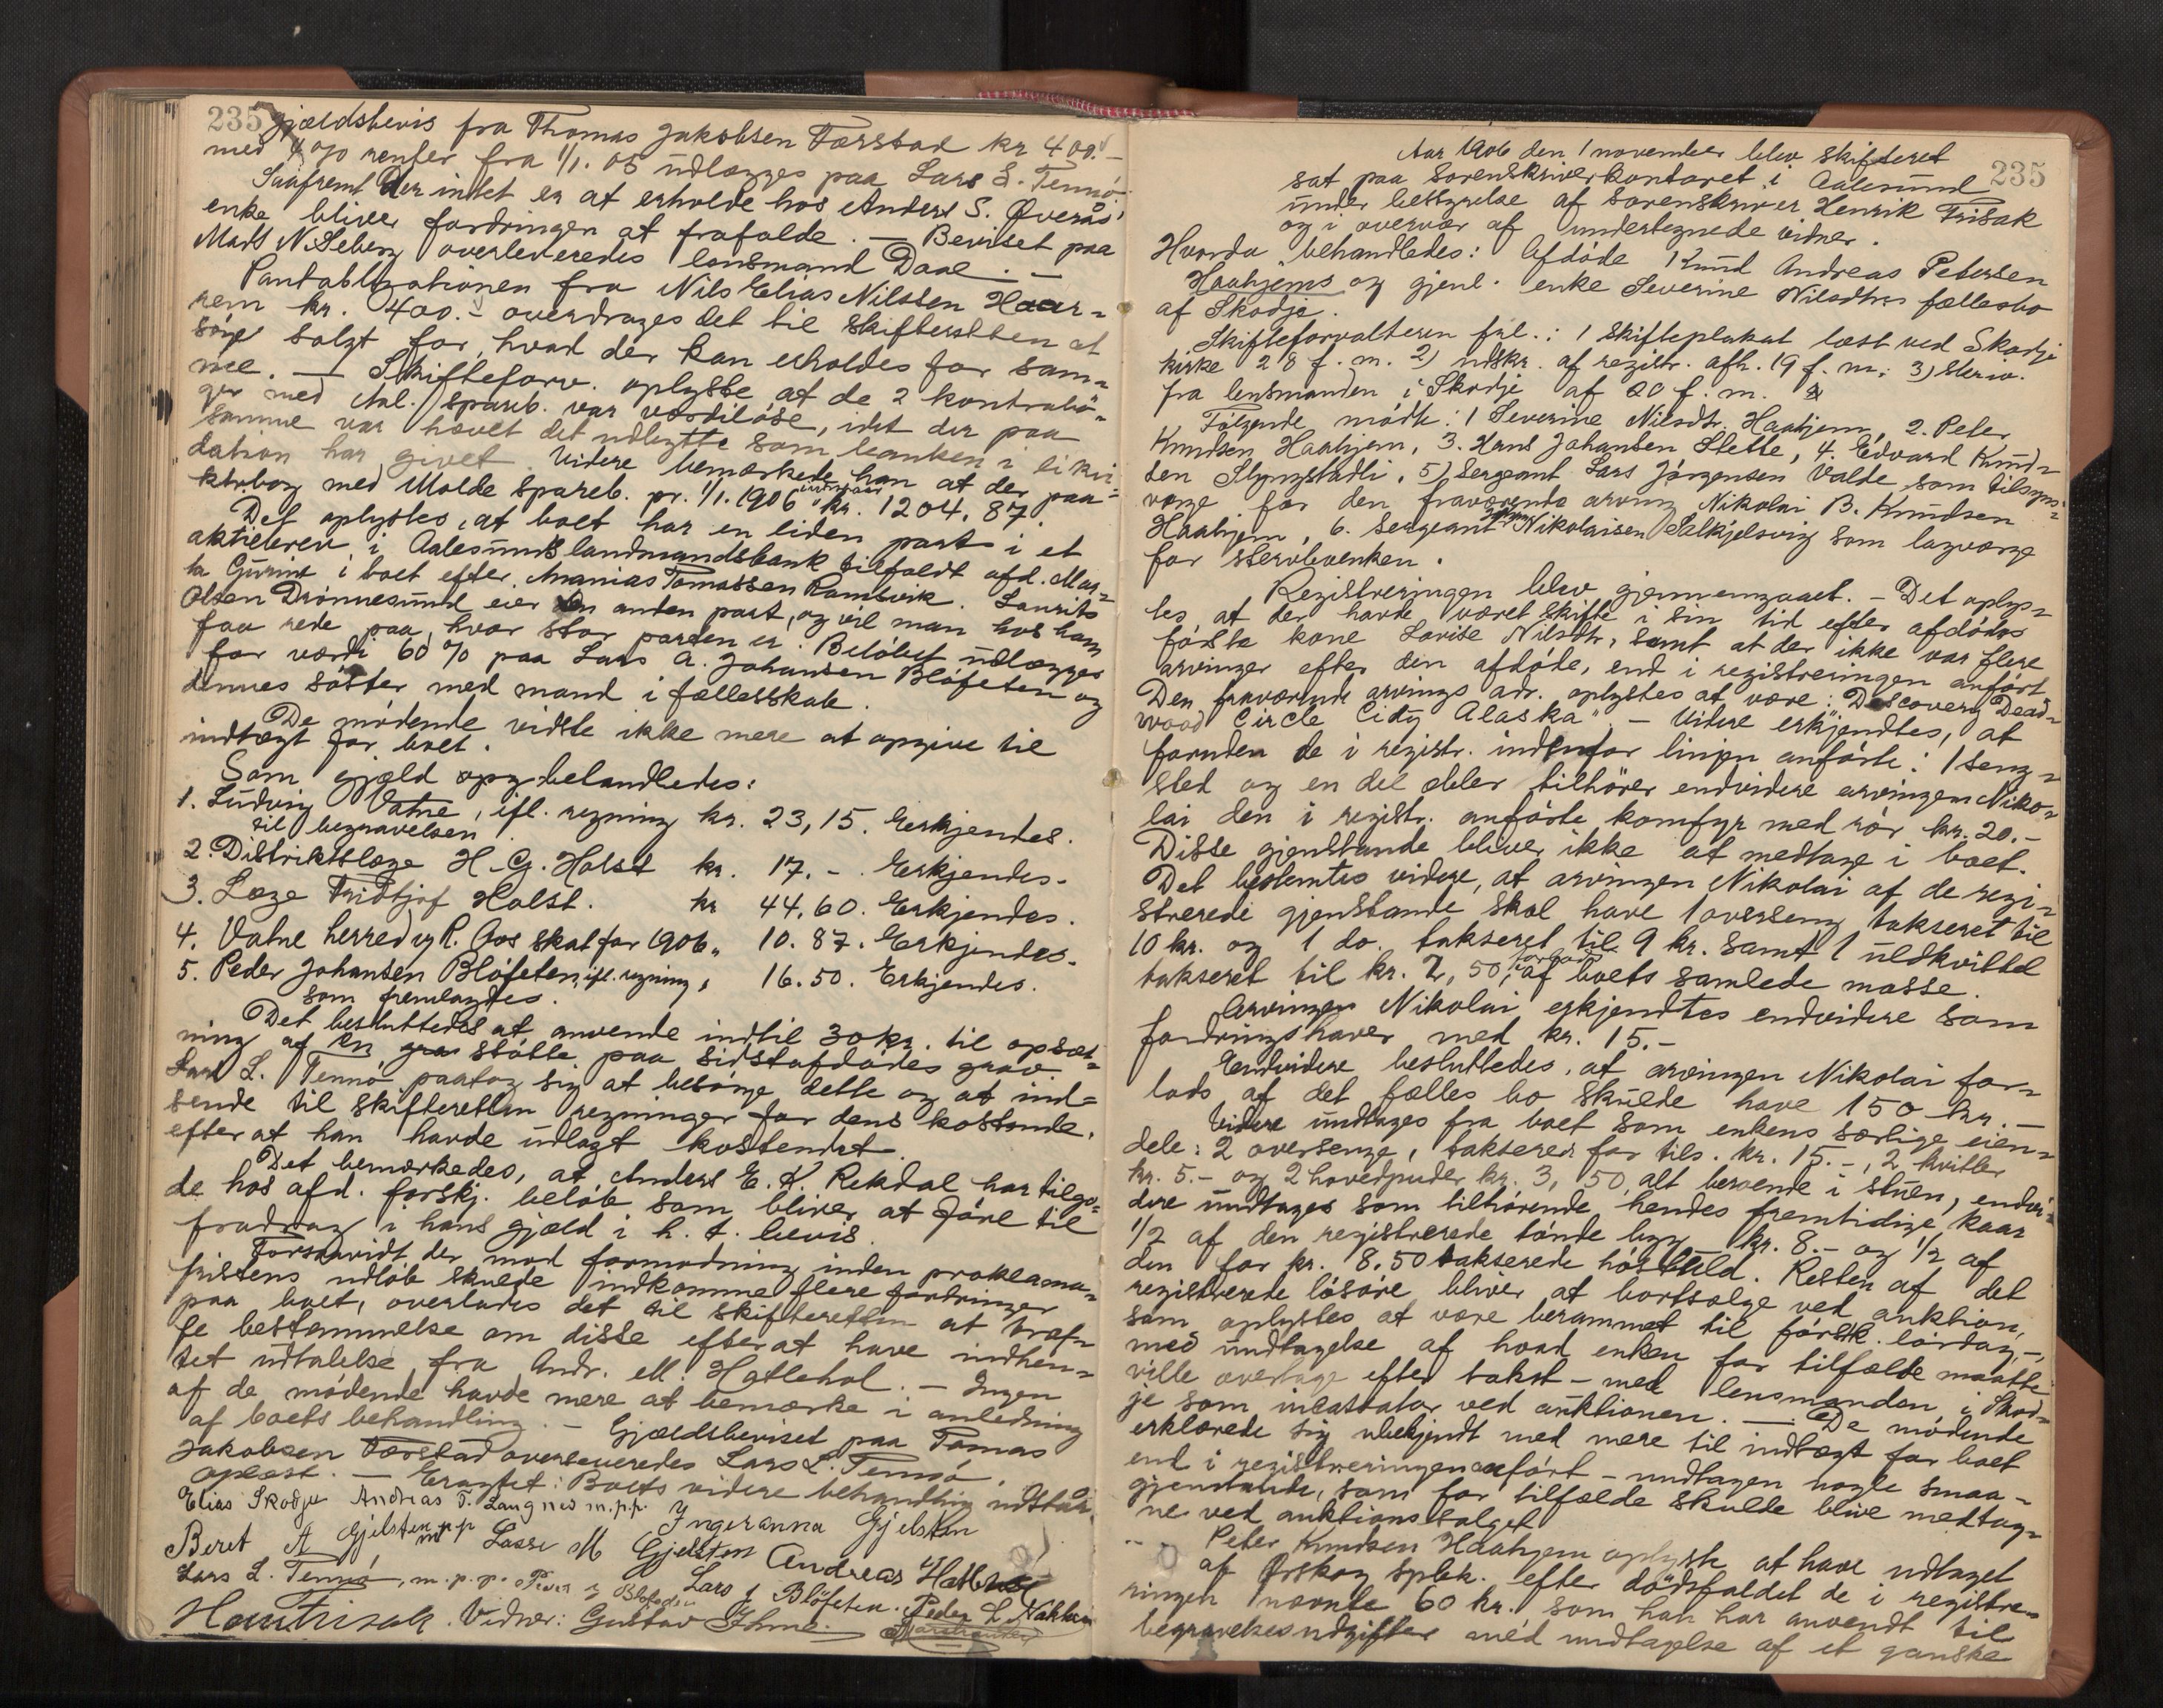 235
gjældsbevis fra Thomas Jakobsen Farstad kr 400.-
med 4% renter fra 1/1. 05 udlægges paa Lars L. Tennö
Saafremt der intet er at erholde hos Anders S. Øveraas
enke bliver fordringen at frafalde. — Beviset paa
Mads N. Seberg overleveredes lensmand Daae. —
Pantobligationen fra Nils Elias Nilssen Haar-
rem kr. 400.- overdrages det til skifteretten at
söge solgt for, hvad der kan erholdes for sam-
me. — Skifteforv. oplyste at de 2 kontrabö-
ger med Aal. spareb. var værdilöse, idet der paa
samme var hævet det udlagte som banken i likvi-
dation har givet. Videre bemærkede han at der paa
ktrbog med Molde spareb. pr. 1/1. 1906 indestaar kr. 1204. 87.
Det oplystes, at boet har en liden part i et
aktiebrev i Aalesunds landmandsbank tilfaldt afd. Mar-
ta Gurine i boet efter Ananias Tomassen Ramsvik. Laurits
Olsen Drönnesund eier den anden part, og vil man hos ham
faa rede paa, hvor stor parten er. Belöbet udlægges
for værdi 60% paa Lars A. Johansen Blöfeten og
dennes söster med mand i fællesskab.
De mödende vidste ikke mere at opgive til
indtægt for boet.
Som gjæld opg behandledes:
1. Ludvig Vatne, ifl. regning kr. 23,15. Erkjendes.
til begravelsen
2. Distriktslæge H. G. Holst kr. 17.- Erkjendes.
3. Læge Fridtjof Holst. kr 44.60. Erkjendes.
4. Vatne herred og R. Aas skat for 1906 „ 10.87. Erkjendes.
5. Peder Johansen Blöfeten, ifl. regning, „ 16.50. Erkjendes.
som fremlagdes.
Det besluttedes at anvende indtil 30 kr. til opsæt-
ning af en grav stötte paa sidstafdödes grav.
Lars L. Tennö paatog sig at besörge dette og at ind-
sende til skifteretten regninger for dens kostende,
efter at han havde udlagt kostendet.
Det bemærkedes, at Anders E. K. Rekdal har tilgo-
de hos afd. forskj. belöb som bliver at före til
fradrag i hans gjæld i h. t. bevis.
Forsaavidt der mod formodning inden proklama-
fristens udlöb skulde indkomme flere fordringer
paa boet, overlades det til skifteretten at træf-
fe bestemmelse om disse efterat have indhen-
tet udtalelse fra Andr. M. Hatlehol. — Ingen
af de mödende havde mere at bemærke i anledning
af boets behandling. — Gjældsbeviset paa Tomas
Jakobsen Farstad overleveredes Lars L. Tennö.
Oplæst. — Eragtet: Boets videre behandling udstaar.
Elias Skodje Andreas T. Langnes m.p.p. Ingeranna Gjelsten
Beret A Gjelsten m.p.p Lasse M Gjelsten Andreas Hatlehol
Lars L. Tennö, m.p.p. Peder J Blöfeten Lars J Blöfeten. Peder L Nakken
Hen. Frisak. Vidner: Gustav Ihme.
235
Aar 1906 den 1 november blev skifteret
sat paa sorenskriverkontoret i Aalesund
under bestyrelse af sorenskriver Henrik Frisak
og i overvær af undertegnede vidner.
Hvorda behandledes: Afdöde Knud Andreas Petersen
Haahjems og gjenl. enke Severine Nilsdtrs fællesbo
af Skodje.
Skifteforvalteren frl.: 1 skifteplakat læst ved Skodje
kirke 28 f. m. 2) udskr. af registr. afh. 19 f. m. 3) skriv.
fra lensmanden i Skodje af 20 f. m.
Fölgende mödte: 1 Severine Nilsdtr. Haahjem, 2. Peter
Knudsen Haahjem, 3. Hans Johansen Stette, 4. Edvard Knud-
sen Slyngstadli, 5) Sergeant Lars Jörgensen Valde som tilsyns-
værge for den fraværende arving Nikolai B. Knudsen
Haahjem, 6. Sergeant Nikolaisen Salkjelsvig som lagværge
for stervboenken.
Registreringen blev gjennemgaaet. — Det oplys-
tes, at der havde været skifte i sin tid efter afdödes
förste kone Lovise Nilsdtr, samt at der ikke var flere
arvinger efter den afdöde, end i registreringen anfört.
Den fraværende arvings adr. oplystes at være: „Discovery Dead-
wood Circle City Alaska". — Videre erkjendtes, at
foruden de i registr. indenfor linjen anförte: 1 seng-
sted og en del æbler tilhörer endvidere arvingen Niko-
lai den i registr. anförte komfyr med rör kr. 20.-
Disse gjenstande bliver ikke at medtage i boet.
Det bestemtes videre, at arvingen Nikolai af de regi-
strerede gjenstande skal have 1 overseng takseret til
10 kr. og 1 do. takseret til 9 kr. samt 1 uldkvittel
takseret til kr. 2, 50, forlods af boets samlede masse.
Arvingen Nikolai erkjendtes endvidere som
fordringshaver med kr. 15.-
Endvidere besluttedes, at arvingen Nikolai for-
lods af det fælles bo skulde have 150 kr. —
Videre undtages fra boet som enkens særlige eien-
dele: 2 oversenge, takseret for tils. kr. 15.-, 2 kvitler
kr. 5.- og 2 hovedpuder kr. 3, 50, alt beroende i stuen, endvi-
dere undtages som tilhörende hendes fremtidige kaar
1/2 af den registrerede tönde byg — kr. 8.- og 1/2 af
den for kr. 8.50 takserede höstuld. Resten af det
registrerede lösöre bliver at bortsælge ved auktion,
som oplystes at være berammet til förstk. lördag, —
med undtagelse af hvad enken for tilfælde maatte
ville overtage efter takst — med lensmanden i Skod-
je som incassator ved auktionen. — De mödende
erklærede sig ubekjendt med mere til indtægt for boet
end i registreringen anfört — undtagen nogle smaa-
gjenstande, som for tilfælde skulde blive medtag-
ne ved auktionssalget.
Peter Knudsen Haahjem oplyste at have udtaget
af Ørskog spbk. efter dödsfaldet de i registre-
ringen nævnte 60 kr., som han har anvendt til
begravelsesudgifter med undtagelse af et ganske